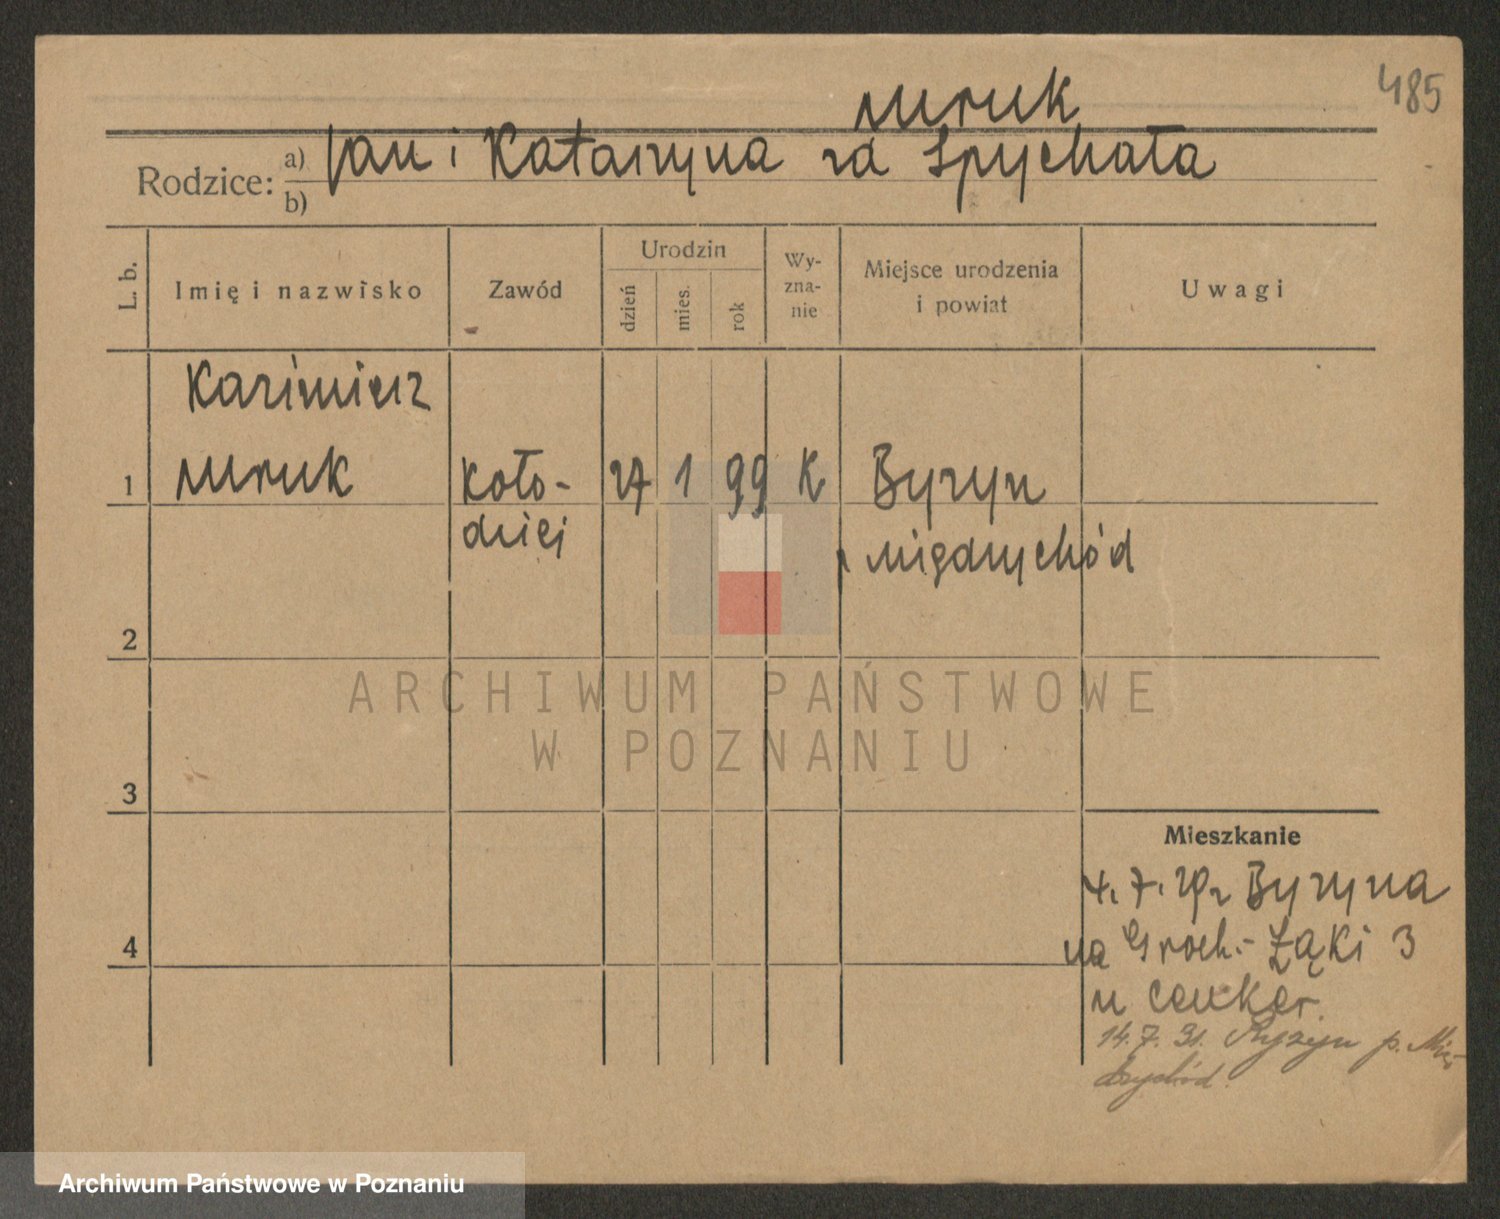 485
Mruk
Rodzice: a) Jan i Katarzyna zd Spychała
b)
L. b. Imię i nazwisko Zawód Urodzin dzień mies. rok Wy-zna-nie Miejsce urodzenia i powiat Uwagi
Kazimierz
1 Mruk Koło- 27 1 99 K Byzyn
dziej p Międzychód
2
ARCHIWUM PAŃSTWOWE
W POZNANIU
3
Mieszkanie
4.7.29 z Byzyna
4 na Groch.- Łąki 3
u Cenker.
14.7.31. p. Mię-
dzychód.
Archiwum Państwowe w Poznaniu